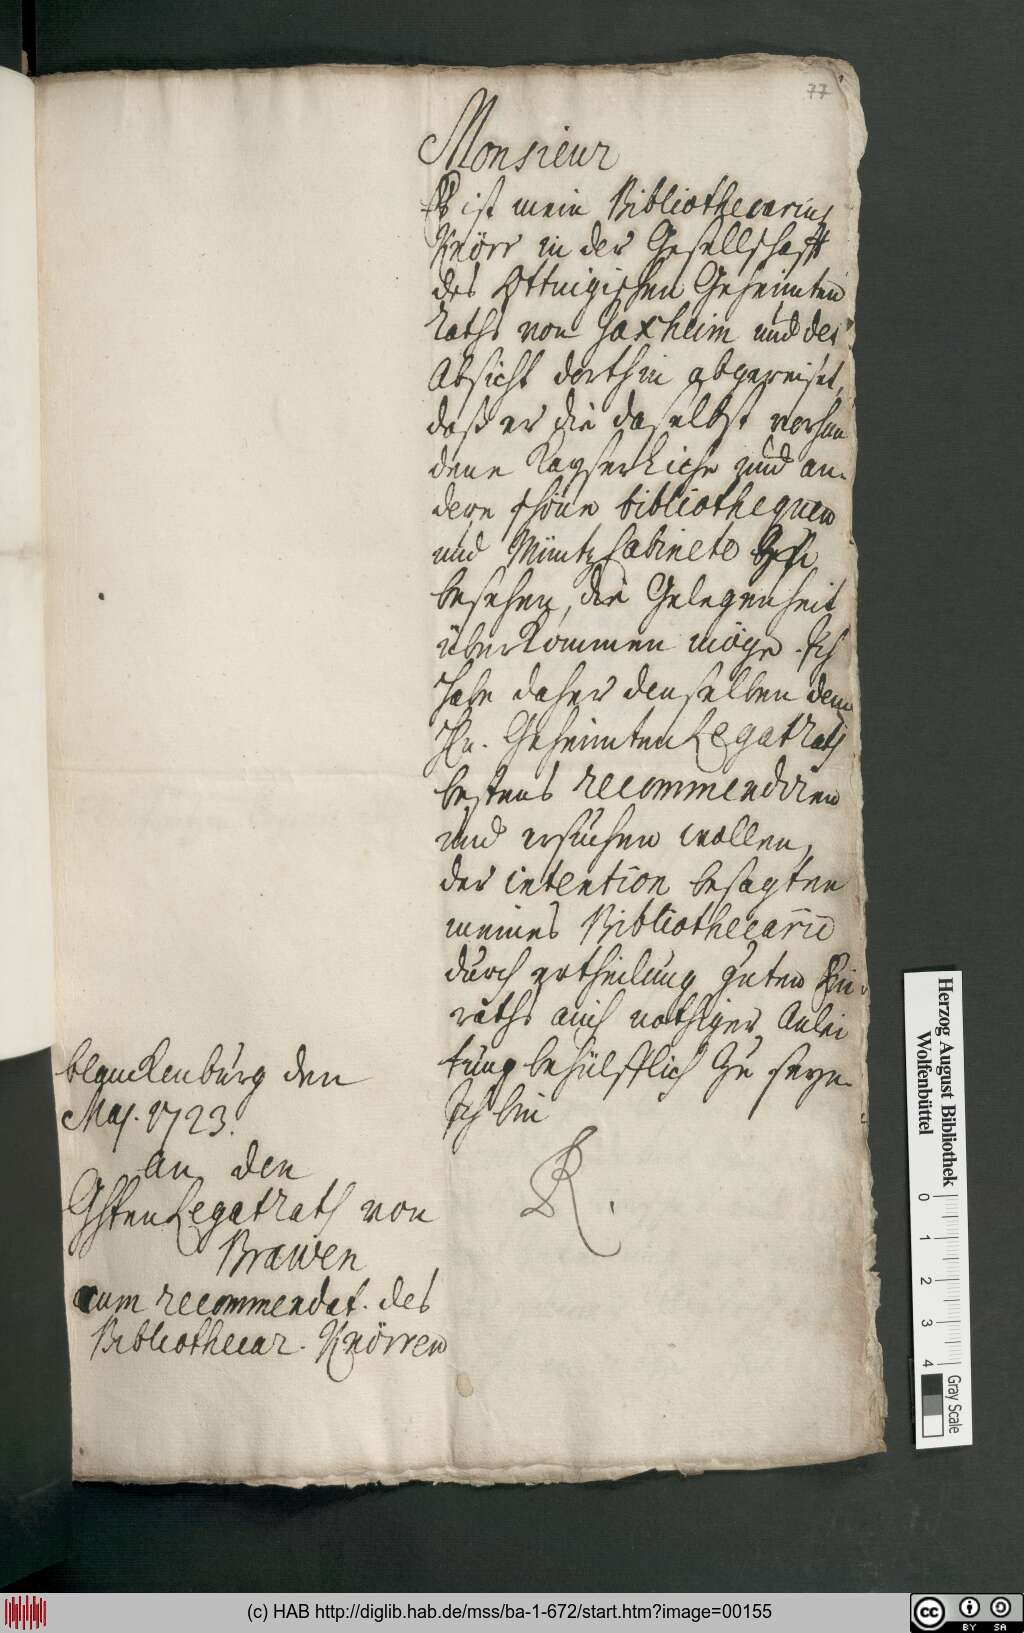 77
Monsieur
Es ist mein Bibliothecarius
Knörr in der Gesellschafft
des Ottingischen Geheimten
Raths von Jaxheim und der
Absicht dorthin abgereiset,
daß er die daselbst vorhan
dene Kayserliche und an-
dere schöne bibliothequen
und Müntz Cabinete zu
besehen, die Gelegenheit
überkommen möge. Ich
habe daher denselben dem
Hn. Geheimten Legat Rath
bestens recommendiren
und ersuchen wollen,
der intention besagten
meines Bibliothecarii
durch ertheilung guten Ein
raths auch nothiger Anlei
tung behülfflich zu seyn.
Ich bin
R.
blanckenburg den
Maj. 1723.
An den
Ghten Legat Rath von
Brawen
cum recommendat. des
Bibliothecar. Knörren
Herzog August Bibliothek
Wolfenbüttel
0 1 2 3 4
Gray Scale
(c) HAB http://diglib.hab.de/mss/ba-1-672/start.htm?image=00155
CC BY SA